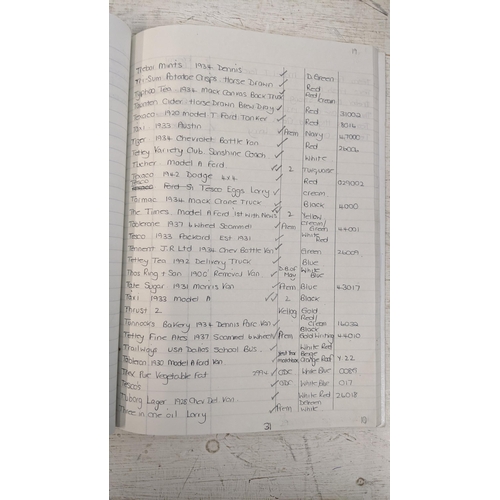 19
Trebor Mints 1934 Dennis ✓ D. Green
Tri-Sum Potatoe Crisps Horse Drawn ✓ Red
Typhoo Tea 1934 Mack Canvas Back Truck Red/ Cream
Taunton Cider Horse Drawn Brew Dray ✓ Red
Texaco 1920 Model T. Ford Tanker ✓ Red
Taxi 1933 Austin ✓ Prem Navy 47000
Tiger 1934 Chevrolet Bottle Van ✓ Red 26004
Tetley Variety Club. Sunshine Coach ✓ White
Tucher Model A Ford ✓ 2 Turquoise
Texaco 1942 Dodge 4x4 ✓ Red 029002
Tesco Ford Tesco Eggs Lorry ✓ Cream
Tarmac 1934 Mack Crane Truck ✓ Black 4000
The Times Model A Ford 1st with News ✓ 2 Yellow
Toblerone 1937 6 wheel Scammell ✓ Prem Cream/ Green 44001
Tesco 1933 Packard Est 1931 ✓ White Red
Tennent J.R Ltd 1934 Chev Bottle Van ✓ Green 26009
Tetley Tea 1992 Delivery Truck ✓ Blue
Thos Ring + Son 1900 Removal Van ✓ D.B of May White Blue
Tate Sugar 1931 Morris Van ✓ Prem Blue 43017
Taxi 1933 Model A ✓✓ 2 Black
Thrust 2 Kellog Gold
Tunnocks Bakery 1934 Dennis Parc Van ✓ Red/ Cream 16032
Tetley Fine Ales 1937 Scammel 6 wheeler ✓ Prem Black Gold Writing 44010
Trailways USA Dallas School Bus ✓ White Red
1930 Model A Ford Van ✓ matchbox Beige Orange Red Y 22
Trex Pure Vegetable Fat 2994 ✓ GDC White Blue 0089
Tesco's ✓ GDC White Blue 017
Tuborg Lager 1928 Chev Del. Van ✓ White Red 26018
Three in one oil Lorry ✓ Prem White
31